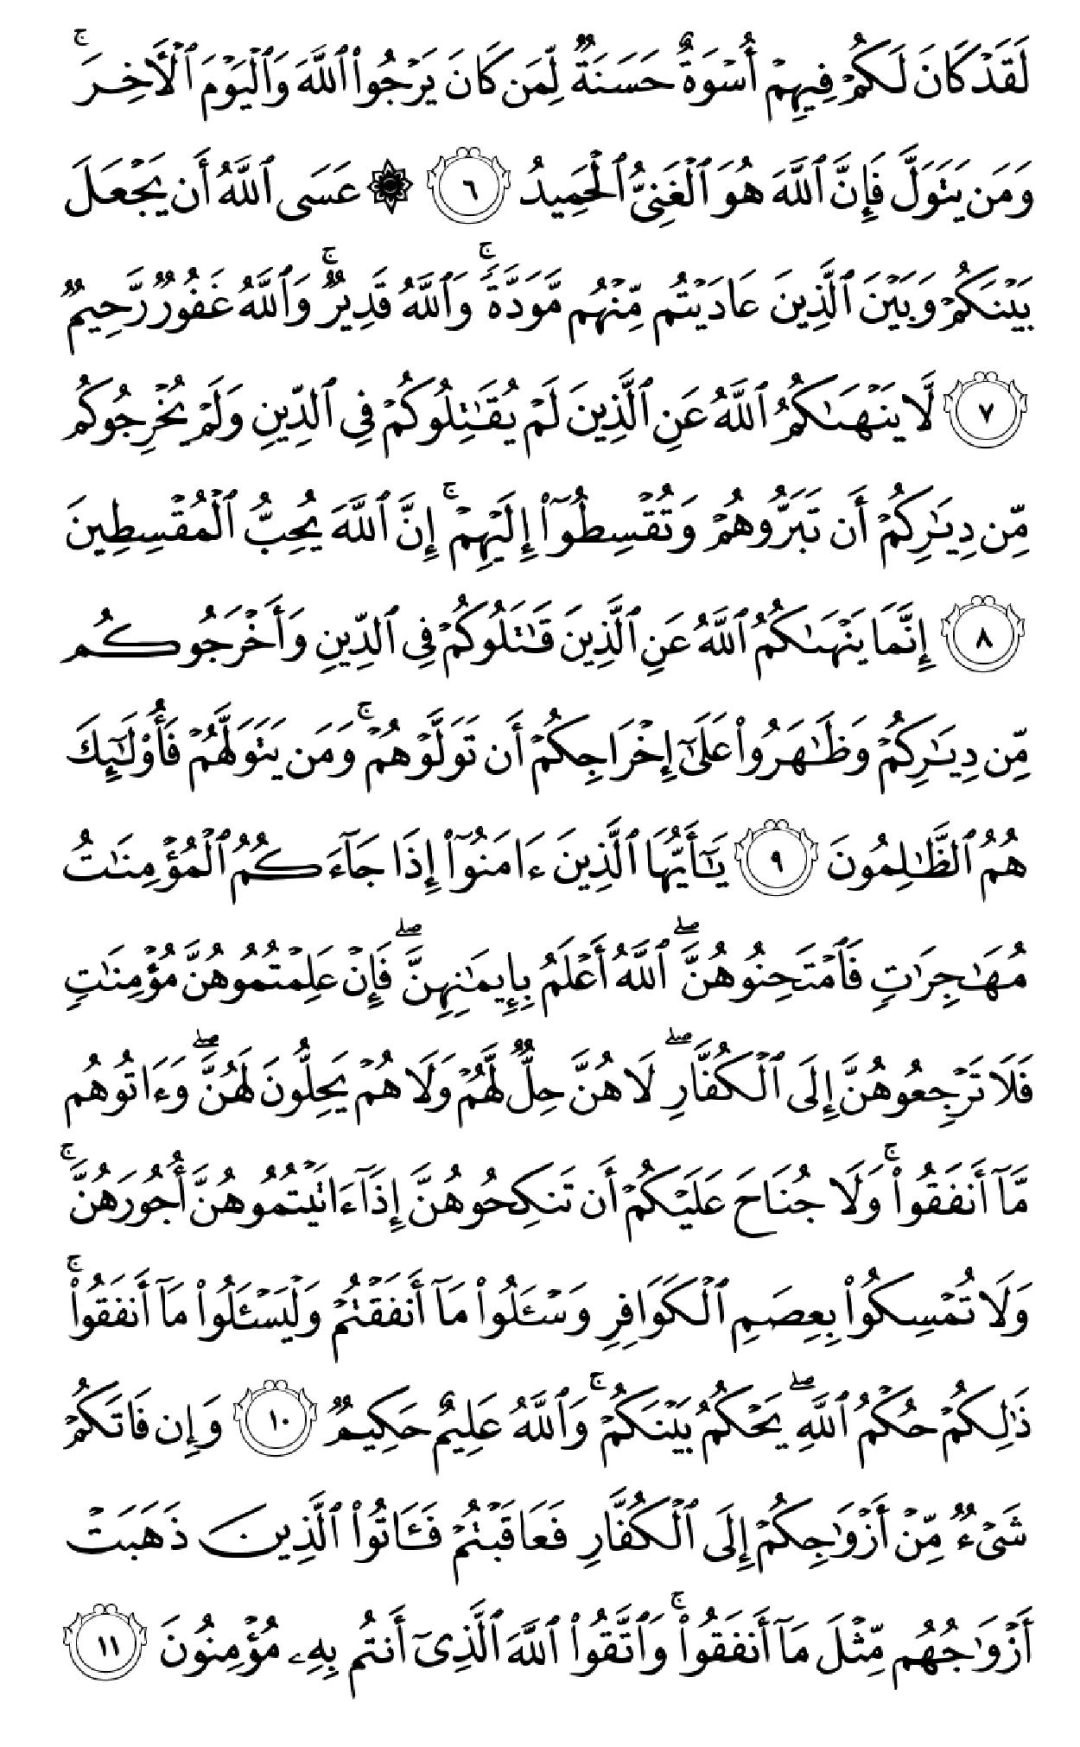 لَقَدۡ كَانَ لَكُمۡ فِيهِمۡ أُسۡوَةٌ حَسَنَةٞ لِّمَن كَانَ يَرۡجُواْ ٱللَّهَ وَٱلۡيَوۡمَ ٱلۡأٓخِرَۚ
وَمَن يَتَوَلَّ فَإِنَّ ٱللَّهَ هُوَ ٱلۡغَنِيُّ ٱلۡحَمِيدُ ٦ ۞ عَسَى ٱللَّهُ أَن يَجۡعَلَ
بَيۡنَكُمۡ وَبَيۡنَ ٱلَّذِينَ عَادَيۡتُم مِّنۡهُم مَّوَدَّةٗۚ وَٱللَّهُ قَدِيرٞۚ وَٱللَّهُ غَفُورٞ رَّحِيمٞ
٧ لَّا يَنۡهَىٰكُمُ ٱللَّهُ عَنِ ٱلَّذِينَ لَمۡ يُقَٰتِلُوكُمۡ فِي ٱلدِّينِ وَلَمۡ يُخۡرِجُوكُم
مِّن دِيَٰرِكُمۡ أَن تَبَرُّوهُمۡ وَتُقۡسِطُوٓاْ إِلَيۡهِمۡۚ إِنَّ ٱللَّهَ يُحِبُّ ٱلۡمُقۡسِطِينَ
٨ إِنَّمَا يَنۡهَىٰكُمُ ٱللَّهُ عَنِ ٱلَّذِينَ قَٰتَلُوكُمۡ فِي ٱلدِّينِ وَأَخۡرَجُوكُم
مِّن دِيَٰرِكُمۡ وَظَٰهَرُواْ عَلَىٰٓ إِخۡرَاجِكُمۡ أَن تَوَلَّوۡهُمۡۚ وَمَن يَتَوَلَّهُمۡ فَأُوْلَٰٓئِكَ
هُمُ ٱلظَّٰلِمُونَ ٩ يَٰٓأَيُّهَا ٱلَّذِينَ ءَامَنُوٓاْ إِذَا جَآءَكُمُ ٱلۡمُؤۡمِنَٰتُ
مُهَٰجِرَٰتٖ فَٱمۡتَحِنُوهُنَّۖ ٱللَّهُ أَعۡلَمُ بِإِيمَٰنِهِنَّۖ فَإِنۡ عَلِمۡتُمُوهُنَّ مُؤۡمِنَٰتٖ
فَلَا تَرۡجِعُوهُنَّ إِلَى ٱلۡكُفَّارِۖ لَا هُنَّ حِلّٞ لَّهُمۡ وَلَا هُمۡ يَحِلُّونَ لَهُنَّۖ وَءَاتُوهُم
مَّآ أَنفَقُواْۚ وَلَا جُنَاحَ عَلَيۡكُمۡ أَن تَنكِحُوهُنَّ إِذَآ ءَاتَيۡتُمُوهُنَّ أُجُورَهُنَّۚ
وَلَا تُمۡسِكُواْ بِعِصَمِ ٱلۡكَوَافِرِ وَسۡـَٔلُواْ مَآ أَنفَقۡتُمۡ وَلۡيَسۡـَٔلُواْ مَآ أَنفَقُواْۚ
ذَٰلِكُمۡ حُكۡمُ ٱللَّهِۖ يَحۡكُمُ بَيۡنَكُمۡۚ وَٱللَّهُ عَلِيمٌ حَكِيمٞ ١٠ وَإِن فَاتَكُمۡ
شَيۡءٞ مِّنۡ أَزۡوَٰجِكُمۡ إِلَى ٱلۡكُفَّارِ فَعَاقَبۡتُمۡ فَـَٔاتُواْ ٱلَّذِينَ ذَهَبَتۡ
أَزۡوَٰجُهُم مِّثۡلَ مَآ أَنفَقُواْۚ وَٱتَّقُواْ ٱللَّهَ ٱلَّذِيٓ أَنتُم بِهِۦ مُؤۡمِنُونَ ١١